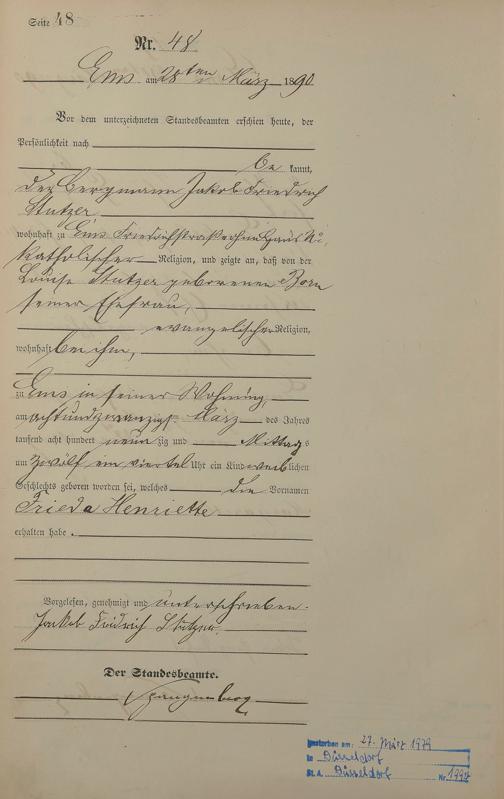 Seite 48
Nr. 48
Ems am 28ten März 1890
Vor dem unterzeichneten Standesbeamten erschien heute, der
Persönlichkeit nach
be kannt,
der Bergmann Jakob Friedrich
Stutzer
wohnhaft zu Ems Friedrichstraße ohne Haus No.,
katholischer Religion, und zeigte an, daß von der
Louise Stutzer geborenen Born
seiner Ehefrau,
evangelischer Religion,
wohnhaft bei ihm,
zu Ems in seiner Wohnung,
am achtundzwanzigst März des Jahres
tausend acht hundert neun zig und Mittags
um zwölf ein viertel Uhr ein Kind weiblichen
Geschlechts geboren worden sei, welches die Vornamen
Frieda Henriette
erhalten habe.
Vorgelesen, genehmigt und unterschrieben.
Jackob Fridrich Stutzer
Der Standesbeamte.
Spangenberg
gestorben am: 27. März 1979
in Düsseldorf
St. A. Düsseldorf Nr.